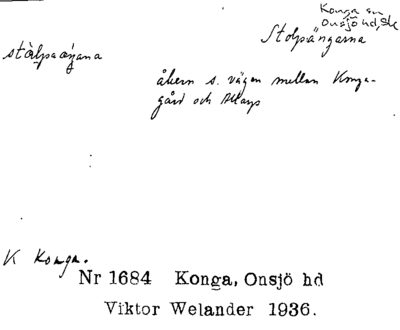 Konga sn
Onsjö hd, Sk
Stolpängarna
stålpaaŋana
åkern s. vägen mellan Konga-
gård och
K Konga.
Nr 1684 Konga, Onsjö hd
Viktor Welander 1936.